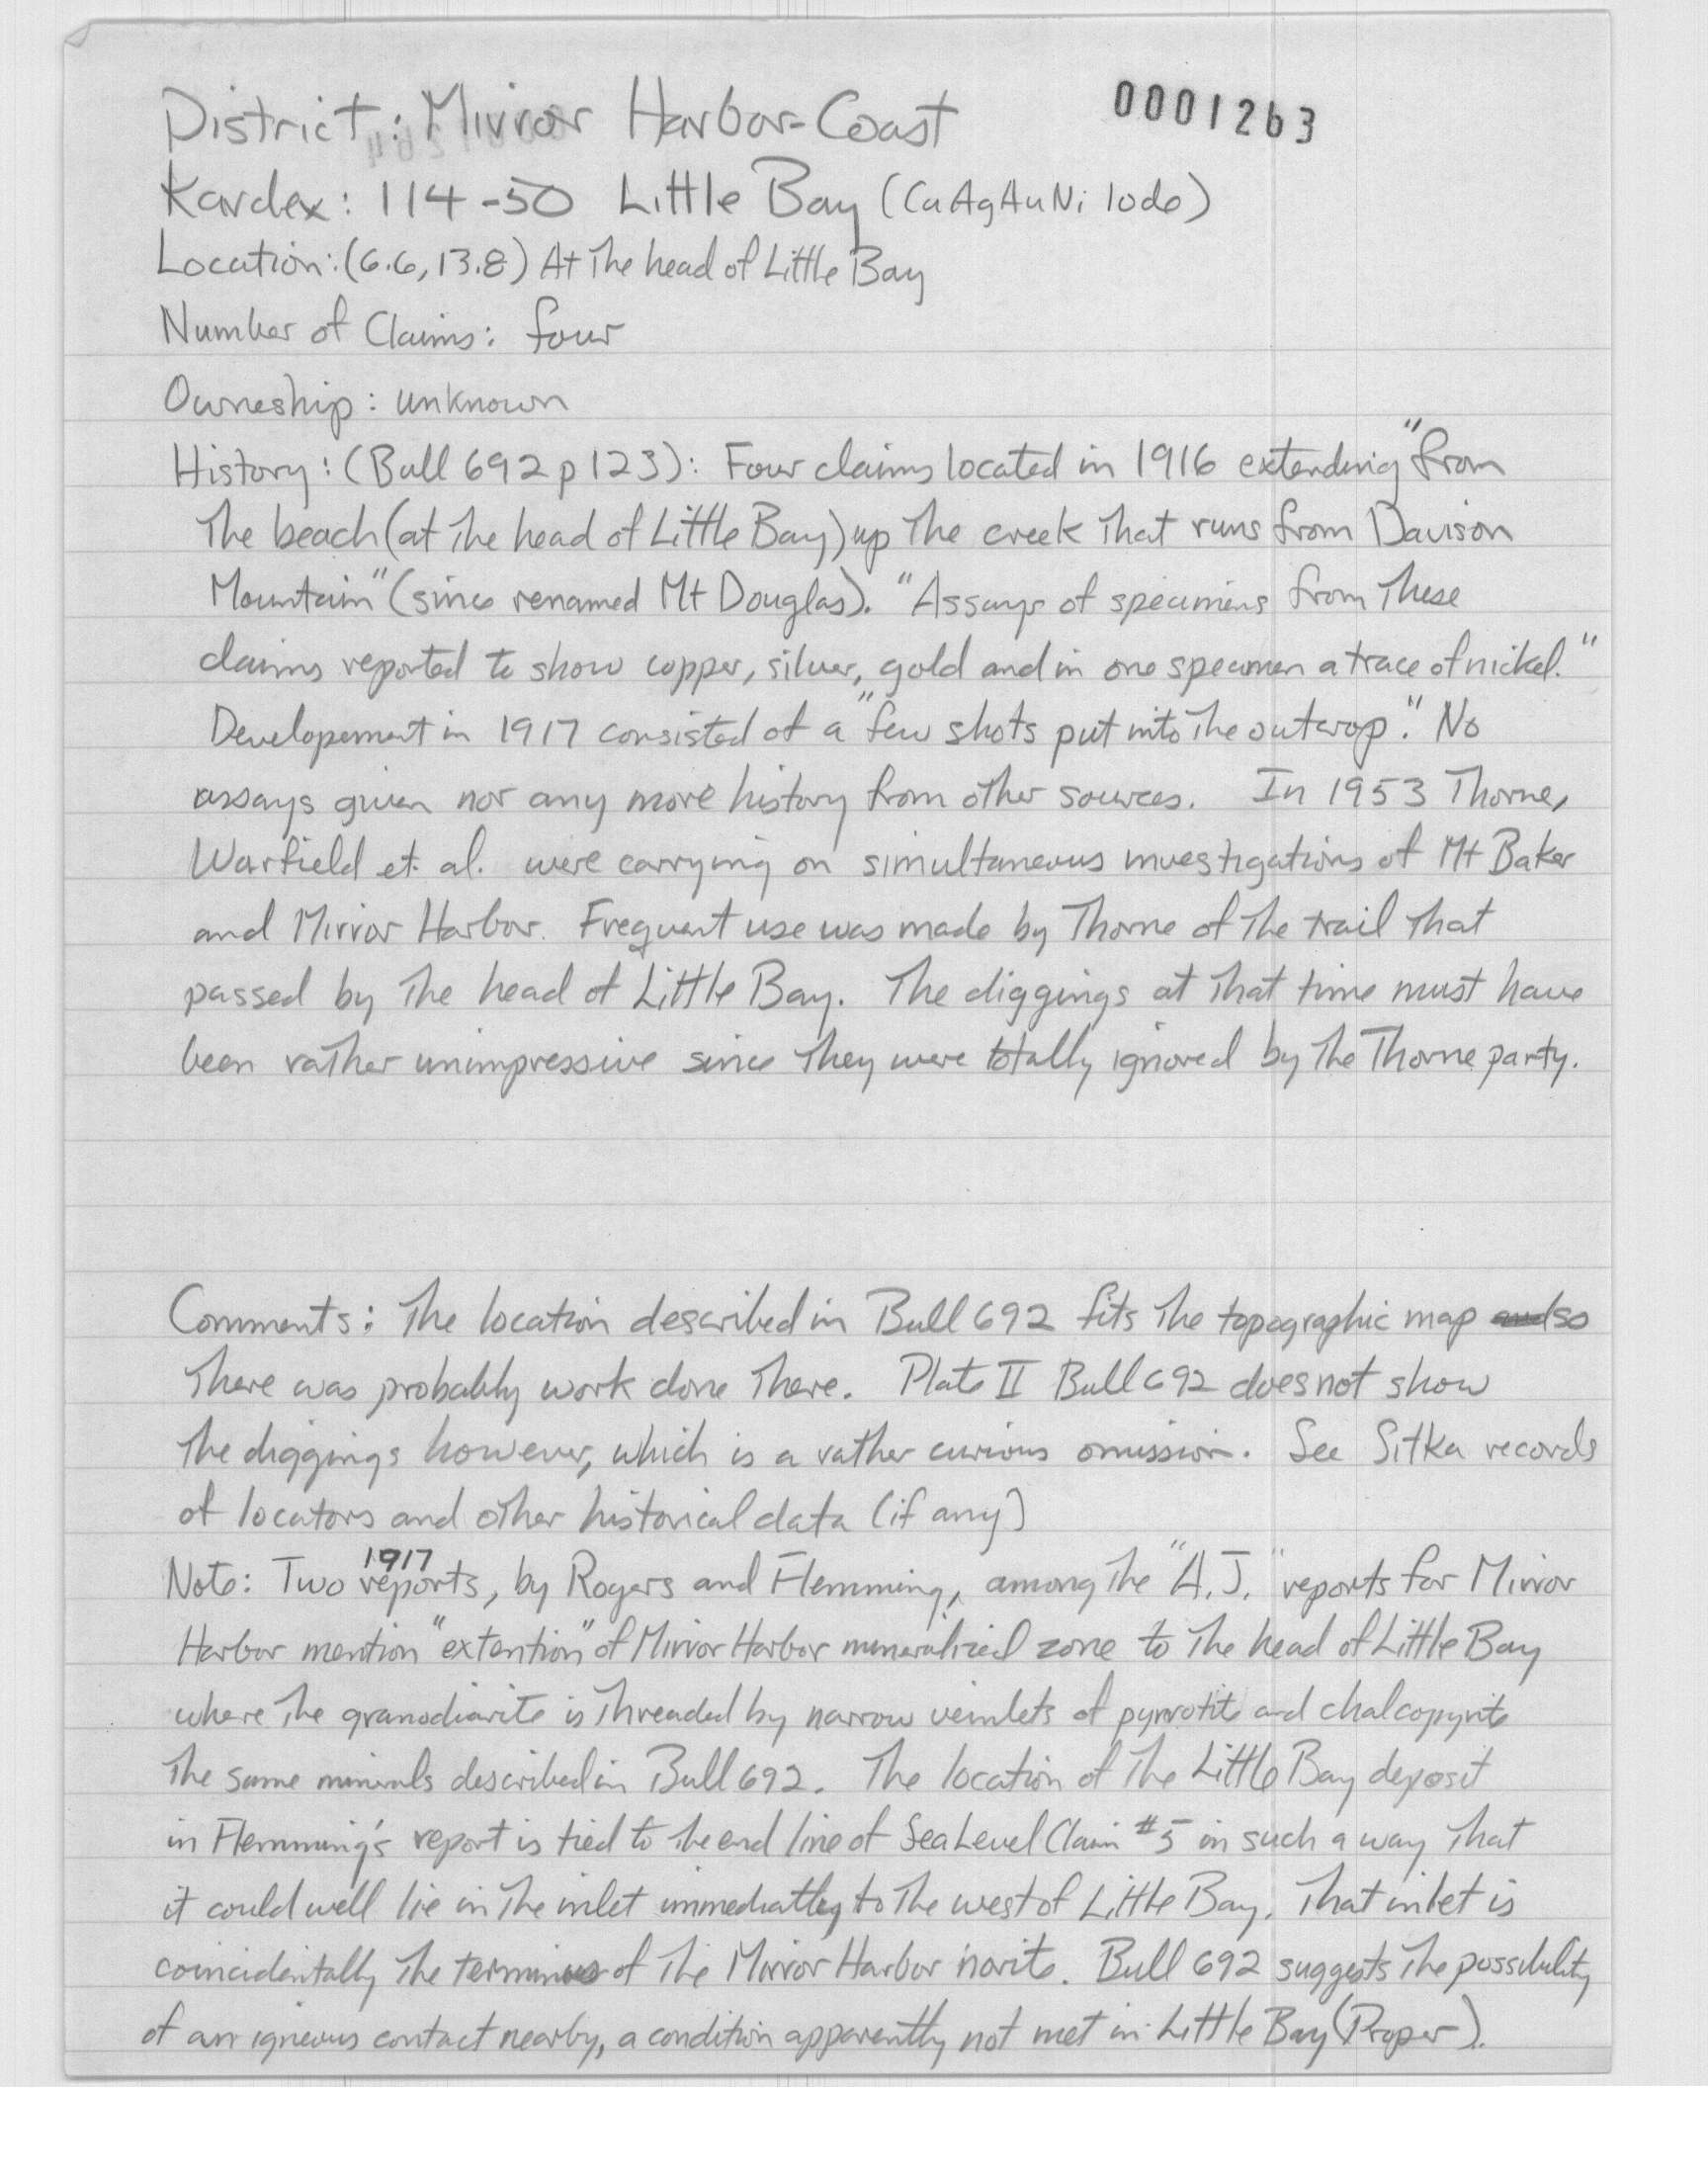 0001263
District: Mirror Harbor-Coast
Kardex: 114-50 Little Bay (CuAgAuNi lode)
Location: (6.6, 13.8) At the head of Little Bay
Number of Claims: four
Owneship: unknown
History: (Bull 692 p 123): Four claims located in 1916 extending "from
the beach (at the head of Little Bay) up the creek that runs from Davison
Mountain" (since renamed Mt Douglas). "Assays of specimens from these
claims reported to show copper, silver, gold and in one specimen a trace of nickel."
Developement in 1917 consisted of a "few shots put into the outcrop." No
assays given nor any more history from other sources. In 1953 Thorne,
Warfield et. al. were carrying on simultaneous investigations of Mt Baker
and Mirror Harbor. Frequent use was made by Thorne of the trail that
passed by the head of Little Bay. The diggings at that time must have
been rather unimpressive since they were totally ignored by the Thorne party.
Comments: The location described in Bull 692 fits the topographic map so
there was probably work done there. Plate II Bull 692 does not show
the diggings however, which is a rather curious omission. See Sitka records
of locators and other historical data (if any)
Note: Two 1917 reports, by Rogers and Flemming, among the "A.J." reports for Mirror
Harbor mention "extention" of Mirror Harbor mineralized zone to the head of Little Bay
where the granodiorite is threaded by narrow veinlets of pyrrotite and chalcopyrite
the same minerals described in Bull 692. The location of the Little Bay deposit
in Flemming's report is tied to the end line of Sea Level Claim #5 in such a way that
it could well lie in the inlet immediatley to the west of Little Bay. That inlet is
coincidentally the terminus of the Mirror Harbor norite. Bull 692 suggests the possibility
of an igneous contact nearby, a condition apparently not met in Little Bay (Proper).